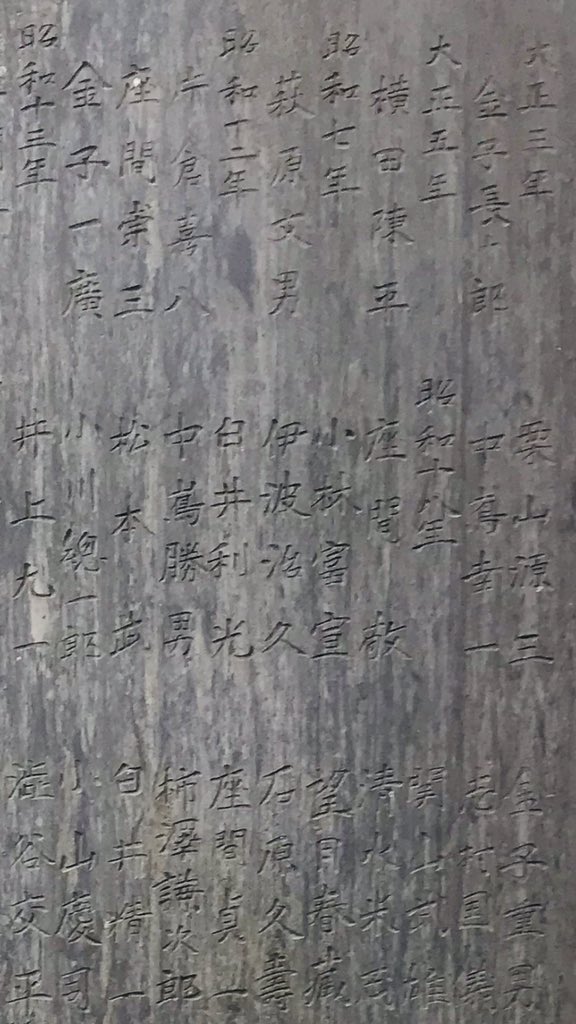 大正三年
金子長十郎
大正五年
横田陳平
昭和七年
萩原文男
昭和十二年
片倉喜八
座間崇三
金子一廣
昭和十三年
栗山源三
中嶌幸一
昭和十八年
座間敬
小林富宣
伊波治久
臼井利光
中嶌勝男
松本武
小川總一郎
井上九一
金子重男
志村国義
関山武雄
清水米
望月春蔵
石原久壽
座間貞一
柿澤講次郎
臼井精一
小山慶司
澁谷交平